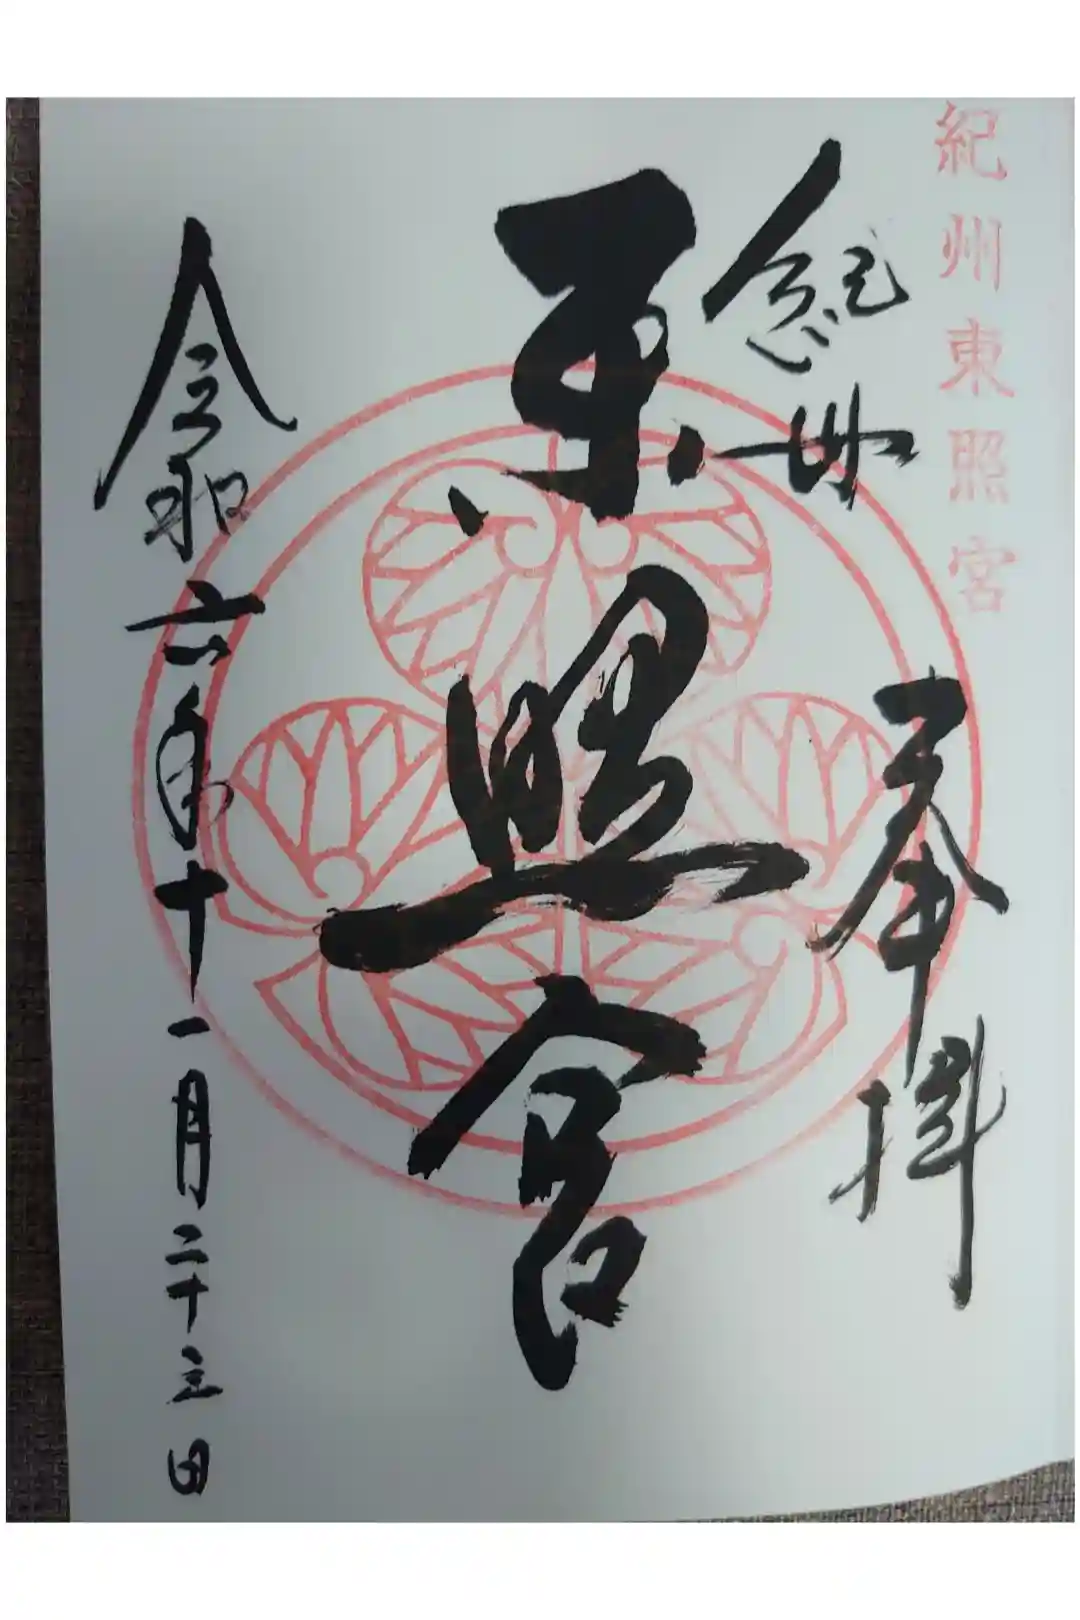 紀州東照宮
紀州
奉拝
東照宮
令和六年十一月二十三日